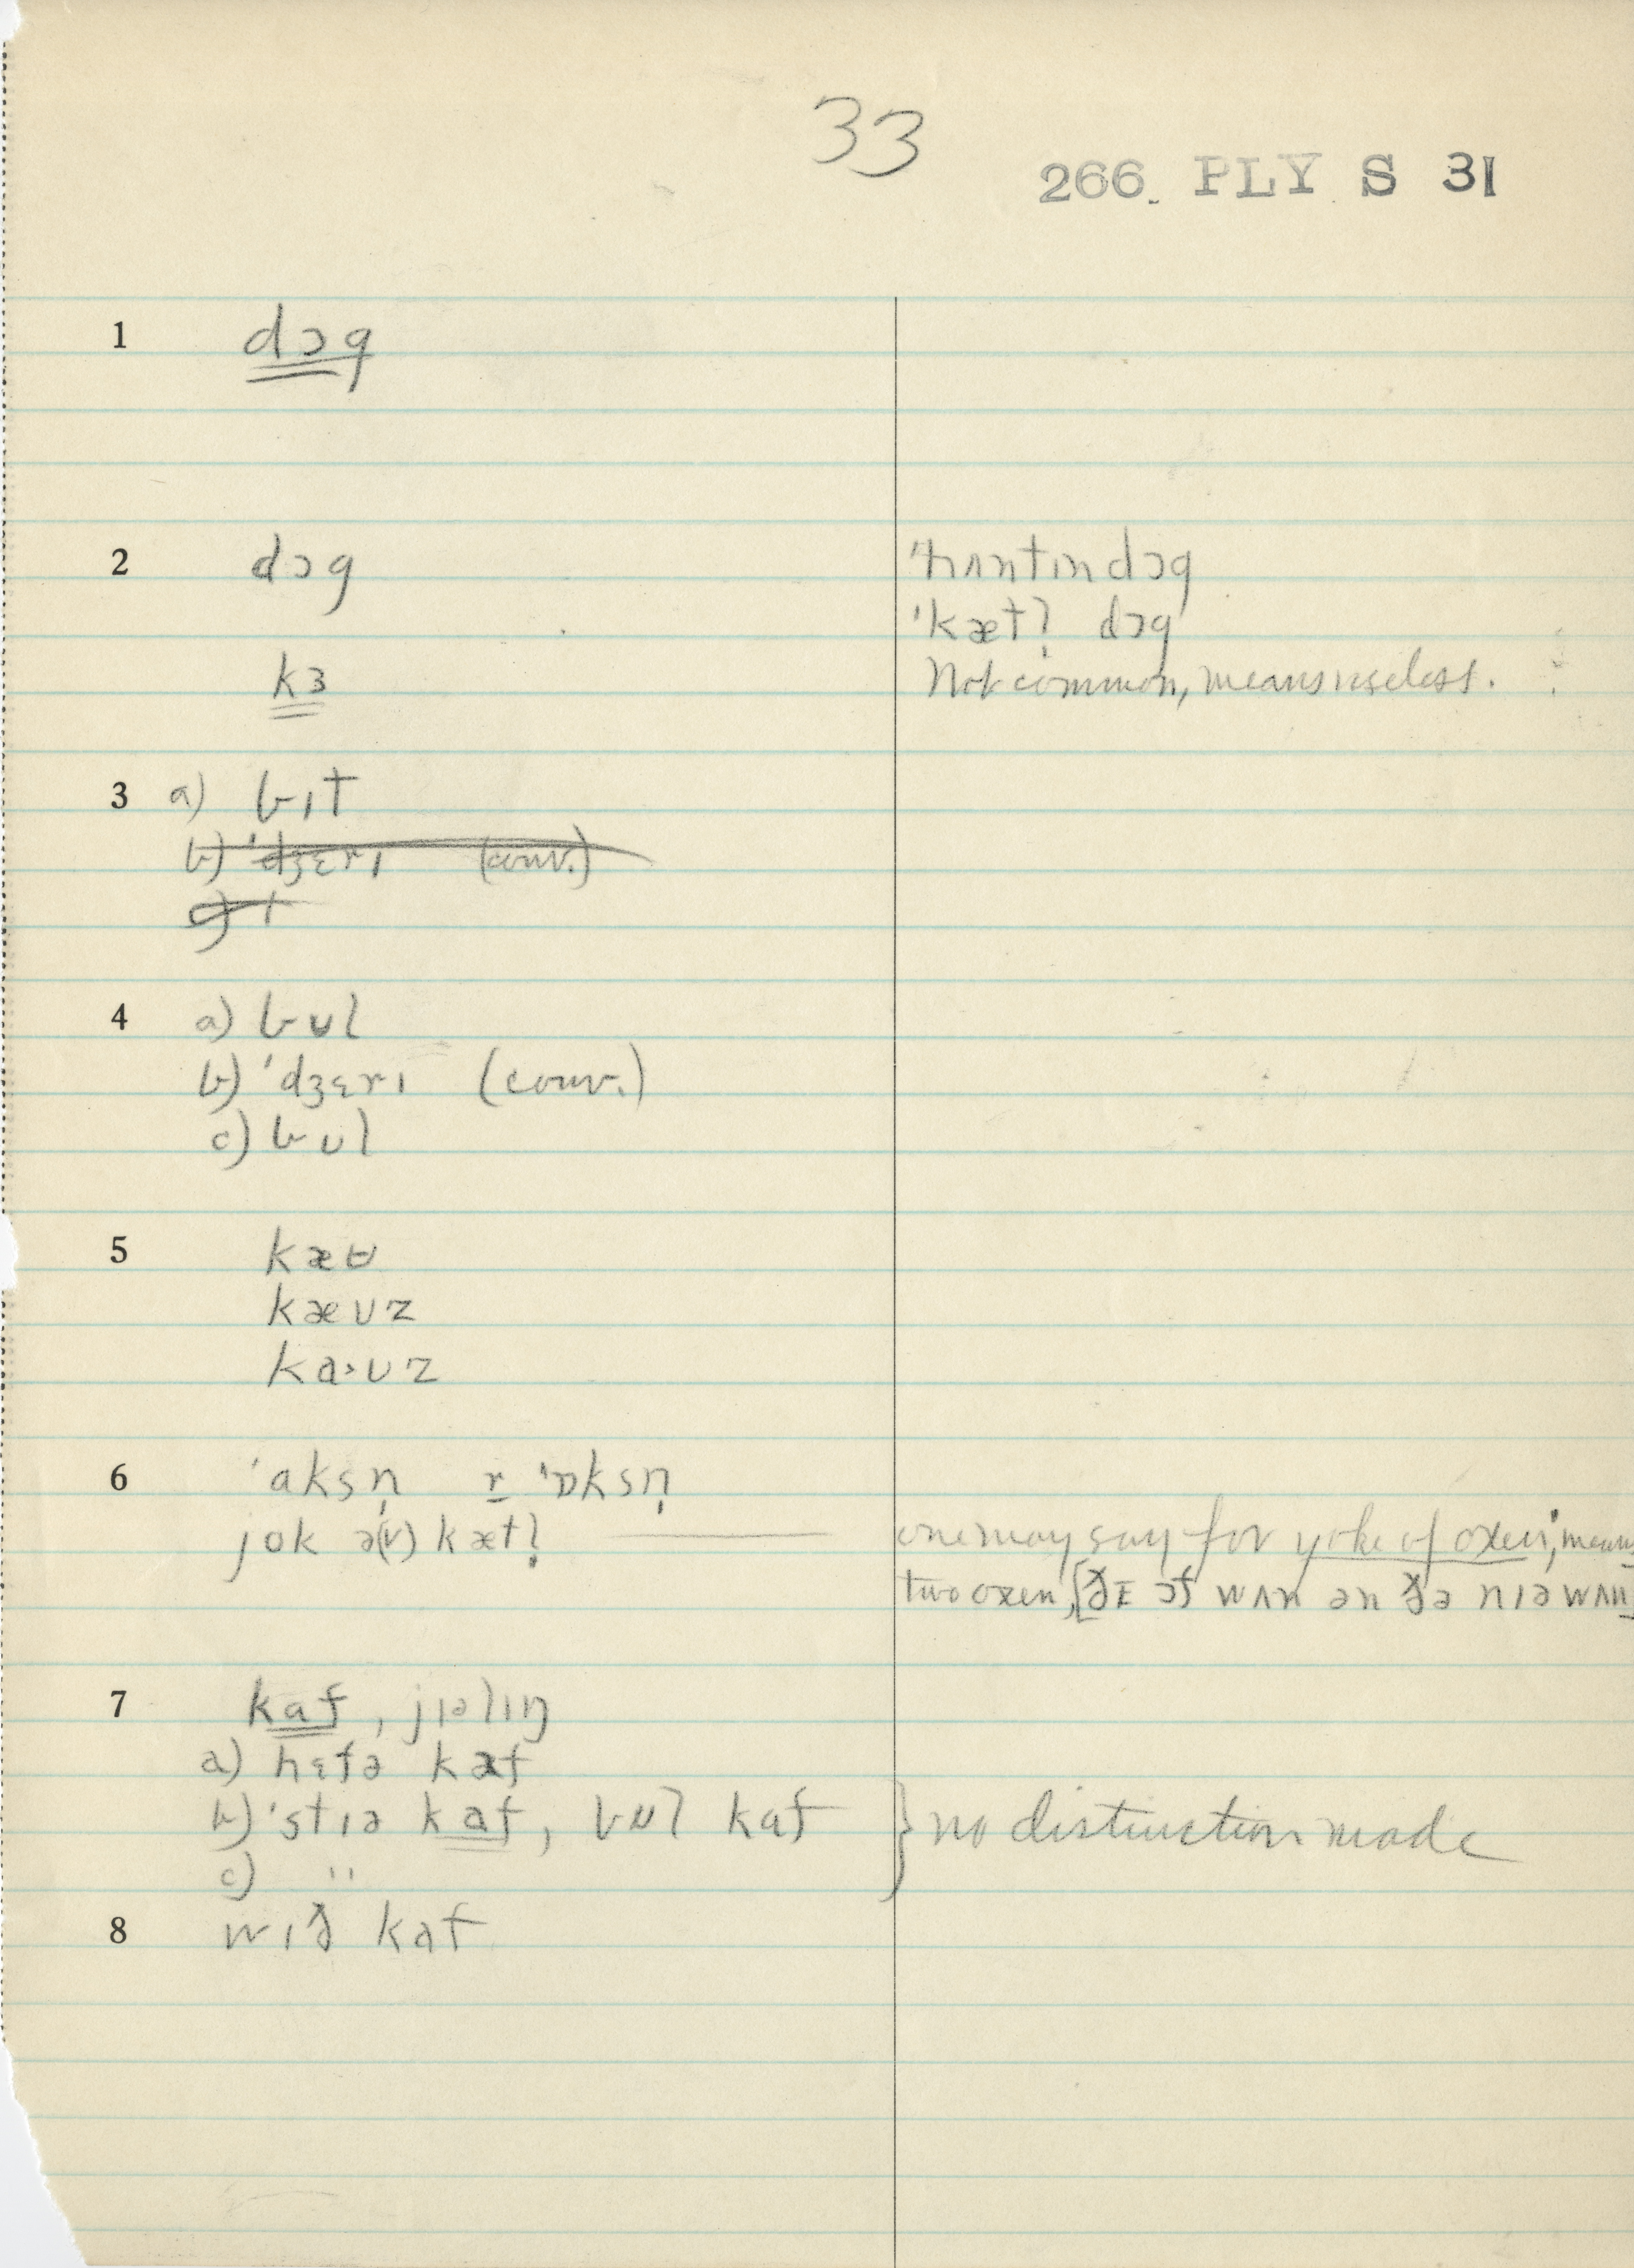 33
266. PLY S 31
1 dɔg
2 dɔg
ˈhʌntɪn dɔg
ˈkætl̩ dɔg
kɜ
Not common, means useless.
3 a) bɪt
b) ˈdʒɛrɪ (conv.)
c) ɪ
4 a) bʊl
b) ˈdʒɛrɪ (conv.)
c) bʊl
5 kæʊ
kæʊz
ka˞ʊz
6 ˈaksn̩ r ˈɒksn̩
jok ə(v) kætl̩
one may say for yoke of oxen; means
two oxen, [ðɪ ɔf wʌn ən ðə nɪə wʌn]
7 kaf, jɪəlɪŋ
a) hɛfə kaf
b) ˈstɪə kaf, bʊl kaf
c) "
} no distinction made
8 wɪð kaf